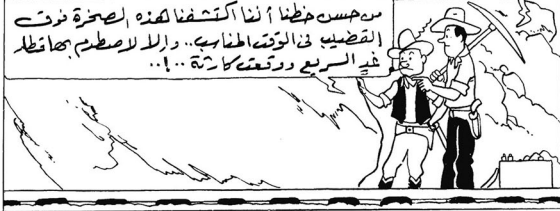 من حسن حظنا أننا اكتشفنا هذه الصخرة فوق
القضيب فى الوقت المناسب.. وإلا لاصطدم بها قطار
غدٍ السريع ووقعت كارثة ..!..